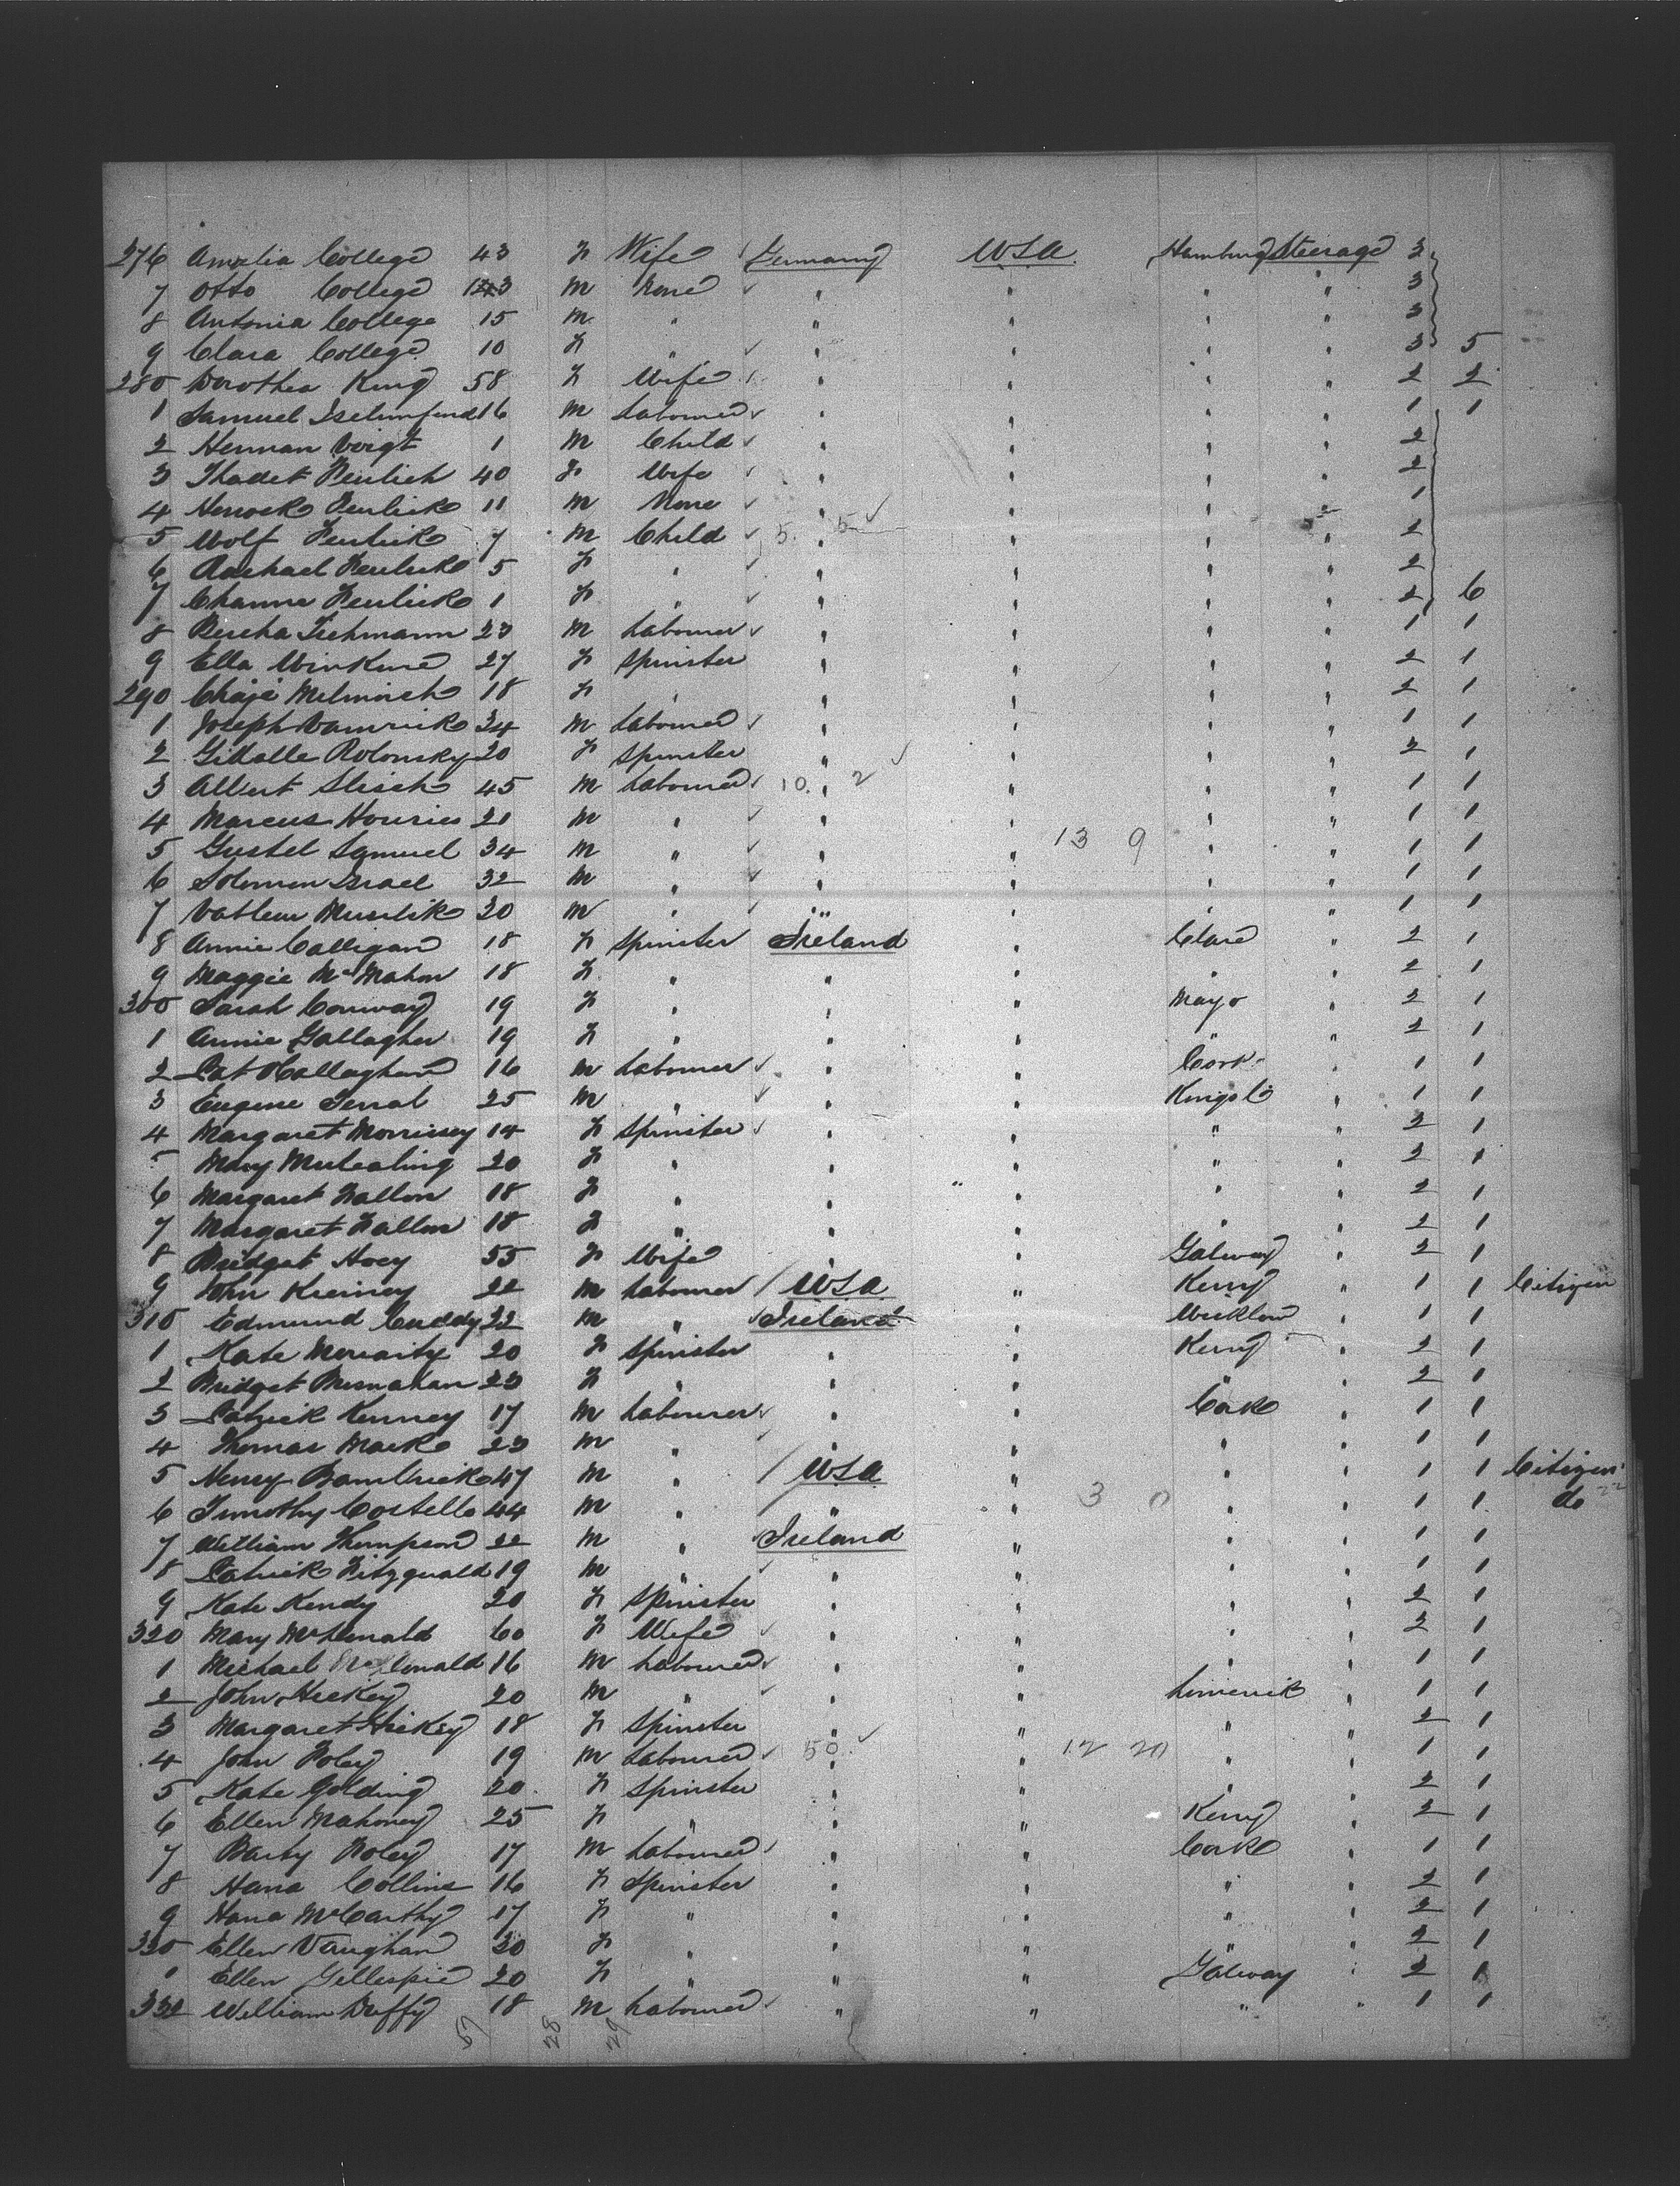 276 Amelia College 43 F Wife Germany USA Hamburg Steerage 3
7 Otto College 13 M None " " " " 3
8 Antonia College 15 M " " " " " 3
9 Clara College 10 F " " " " " 3 5
280 Dorothea King 58 F Wife " " " " 2 2
1 Samuel 16 M Labourer " " " " 1 1
2 Herman Voigt 1 M Child " " " " 2
3 40 F Wife " " " " 2
4 11 M None " " " " 1
5 Wolf 7 M Child 5 " 5 " " " 2
6 Rachael 5 F " " " " " 2
7 Channe 1 F " " " " " 2 6
8 Bercha Tiehmann 23 M Labourer " " " " 1 1
9 Ella 27 F Spinster " " " " 2 1
290 18 F " " " " " 2 1
1 Joseph 34 M Labourer " " " " 1 1
2 Rolonsky 20 F Spinster " " " " 2 1
3 Albert 45 M Labourer 10 " 2 " " " 1 1
4 Marcus 21 M " " " " " 1 1
5 Gustel Samuel 34 M " " " 13 9 " " 1 1
6 Solomon Israel 32 M " " " " " 1 1
7 20 M " " " " " 1 1
8 Annie Calligan 18 F Spinster Ireland " Clare " 2 1
9 Maggie McMahon 18 F " " " " " 2 1
300 Sarah Conway 19 F " " " Mayo " 2 1
1 Annie Gallagher 19 F " " " " " 2 1
2 Pat OCallaghan 16 M Labourer " " Cork " 1 1
3 Eugene 25 M " " " Kings Co " 1 1
4 Margaret Morrissey 14 F Spinster " " " " 2 1
5 Mary 20 F " " " " " 2 1
6 Margaret Fallon 18 F " " " " " 2 1
7 Margaret Fallon 18 F " " " " " 2 1
8 Bridget Hoey 55 F Wife " " Galway " 2 1
9 John 22 M Labourer / USA " Kerry " 1 1 Citizen
310 Edmund Cuddy 22 M " Ireland " Wicklow " 1 1
1 Kate Moriarity 20 F Spinster " " Kerry " 2 1
2 Bridget Bresnahan 23 F " " " " " 2 1
3 Patrick Kenney 17 M Labourer " " Cork " 1 1
4 Thomas Mack 23 M " " " " " 1 1
5 Henry Bambrick 47 M " / USA " " " 1 1 Citizen
6 Timothy Costello 44 M " " " 3 0 " " 1 1 do
7 William Thompson 22 M " Ireland " " " 1 1
8 Patrick Fitzgerald 19 M " " " " " 1 1
9 Kate Kendy 20 F Spinster " " " " 2 1
320 Mary McDonald 60 F Wife " " " " 2 1
1 Michael McDonald 16 M Labourer " " " " 1 1
2 John Hickey 20 M " " " Limerick " 1 1
3 Margaret Hickey 18 F Spinster " " " " 2 1
4 John Foley 19 M Labourer 50 " " 12 20 " " 1 1
5 Kate Golding 20 F Spinster " " " " 2 1
6 Ellen Mahoney 25 F " " " Kerry " 2 1
7 Barty Foley 17 M Labourer " " Cork " 1 1
8 Hana Collins 16 F Spinster " " " " 2 1
9 Hana McCarthy 17 F " " " " " 2 1
330 Ellen Vaughan 20 F " " " " " 2 1
1 Ellen Gillespie 20 F " " " Galway " 2 1
332 William Duffy 18 M Labourer " " " " 1 1
28 29